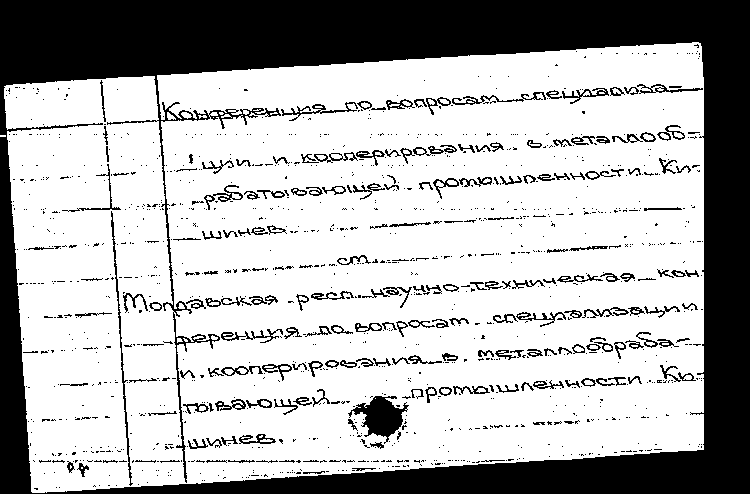 Конференция по вопросам специализа=
ции и кооперирования в металлооб=
рабатывающей промышленности. Ки-
шинев.
см.
Молдавская респ. научно-техническая кон-
ференция по вопросам специализации
и кооперирования в металлообраба-
тывающей промышленности Ки-
шинев.